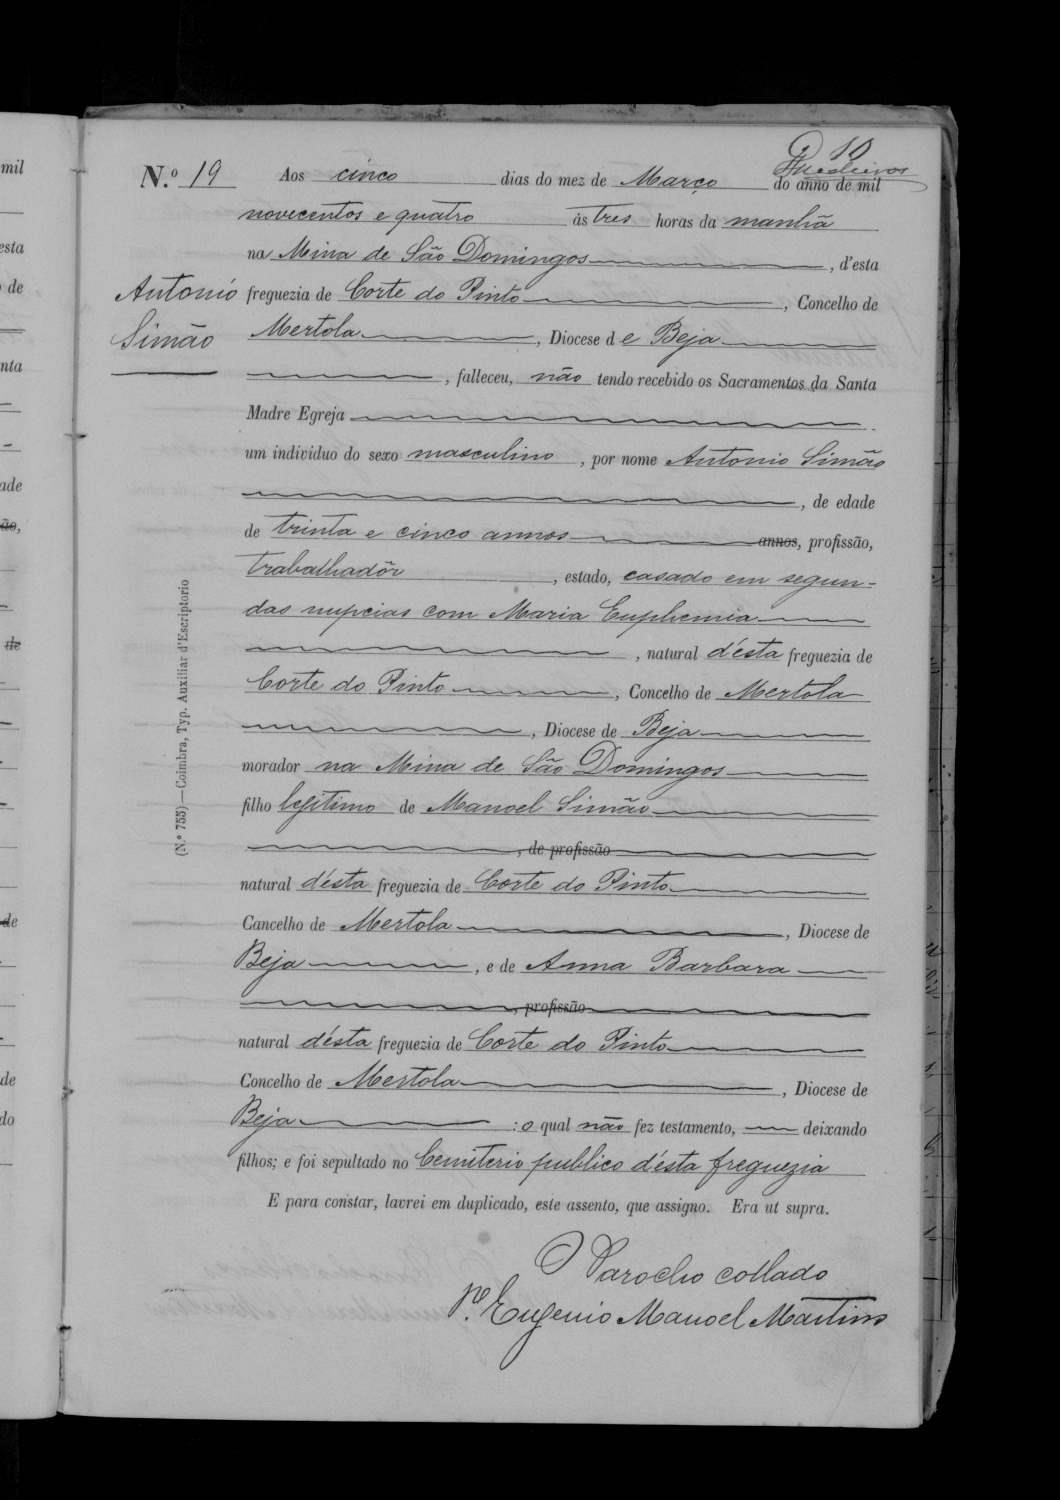 10
Quedeiros
N.º 19 Aos cinco dias do mez de Março do anno de mil
novecentos e quatro ás tres horas da manhã
na Mina de São Domingos, d'esta
Antonio
Simão
freguezia de Corte do Pinto, Concelho de
Mertola, Diocese de Beja
, falleceu, não tendo recebido os Sacramentos da Santa
Madre Egreja
um individuo do sexo masculino, por nome Antonio Simão
, de edade
de trinta e cinco annos annos, profissão,
trabalhadôr, estado, casado em segun-
das nupcias com Maria Euphemia
, natural d'ésta freguezia de
Corte do Pinto, Concelho de Mertola
, Diocese de Beja
morador na Mina de São Domingos
filho legitimo de Manoel Simão
, de profissão
natural d'ésta freguezia de Corte do Pinto
Cancelho de Mertola, Diocese de
Beja, e de Anna Barbara
, profissão
natural d'ésta freguezia de Corte do Pinto
Concelho de Mertola, Diocese de
Beja : o qual não fez testamento, deixando
filhos; e foi sepultado no Cemiterio publico d'ésta freguezia
E para constar, lavrei em duplicado, este assento, que assigno. Era ut supra.
O Parocho collado
P.e Eugenio Manoel Martins
(N.º 755)—Coimbra, Typ. Auxiliar d'Escriptorio
mil
esta
de
nta
ade
ão,
de
de
de
do